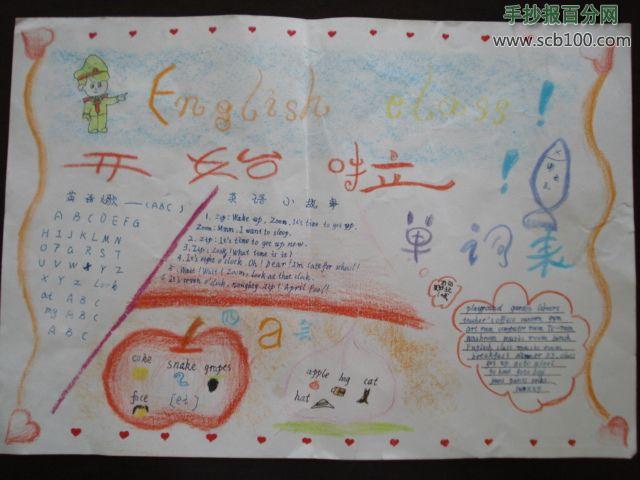 手抄报百分网
www.scb100.com
English class!
开始啦!
英语歌——(ABC)
A B C D E F G
H I J K L M N
O P Q R S T
U V W X Y Z
X Y Z Look
at A B C
my A B C
A B C
英语小故事
1. Zip: Wake up, Zoom. It's time to get up.
Zoom: Mmm. I want to sleep.
2. Zip: It's time to get up now.
3. Zip: Look! What time is it?
4. It's eight o'clock. Oh! Dear! I'm late for school!
5. Wait! Wait! Zoom, look at that clock.
It's seven o'clock, naughty Zip! April Fool!
单词表
playground garden library
teacher's office canteen gym
art room computer room TV room
washroom music room lunch
English class music room
breakfast dinner P.E. class
get up go to school
go home go to bed
四 a 会
cake
snake
grapes
face
[ei]
apple
bag
cat
hat